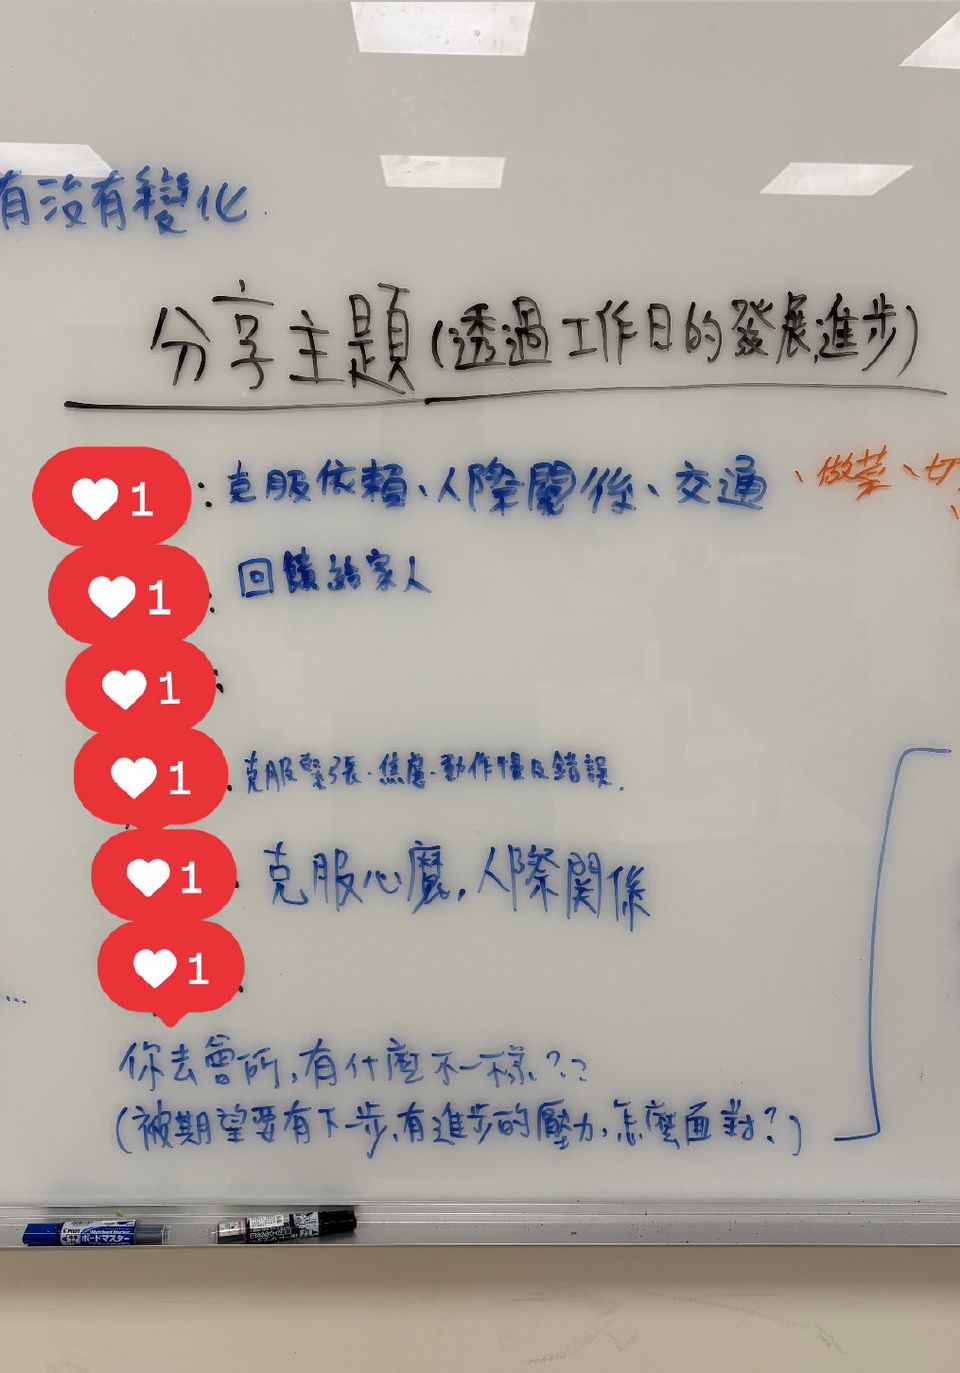 有沒有變化
分享主題(透過工作日的發展,進步)
1:克服依賴、人際關係、交通、做菜、切
1:回饋給家人
1:
1 克服緊張.焦慮.動作慢及錯誤.
1 克服心魔,人際關係
1
你去會所,有什麼不一樣??
(被期望要有下一步,有進步的壓力,怎麼面對?)
ボードマスター